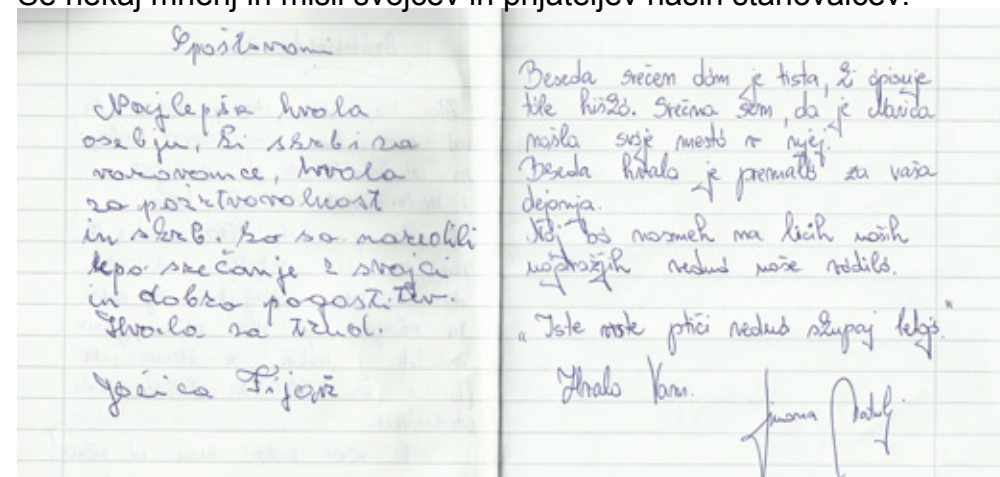 Še nekaj mnenj in misli svojcev in prijateljev naših stanovalcev:
Spoštovani
Najlepša hvala
osebju, ki skrbi za
varovance, hvala
za požrtvovalnost
in skrb. Ko so naredili
lepo srečanje z svojci
in dobro pogostitev.
Hvala za trud.
Jožica
Beseda srečen dom je tista, ki opisuje
tole hiško. Srečna sem, da je Marica
našla svoje mesto v njej.
Beseda hvala je premalo za vaša
dejanja.
Naj bo nasmeh na licih naših
najdražjih vedno vaše vodilo.
"Iste vrste ptiči vedno skupaj letajo."
Hvala Vam.
Simona